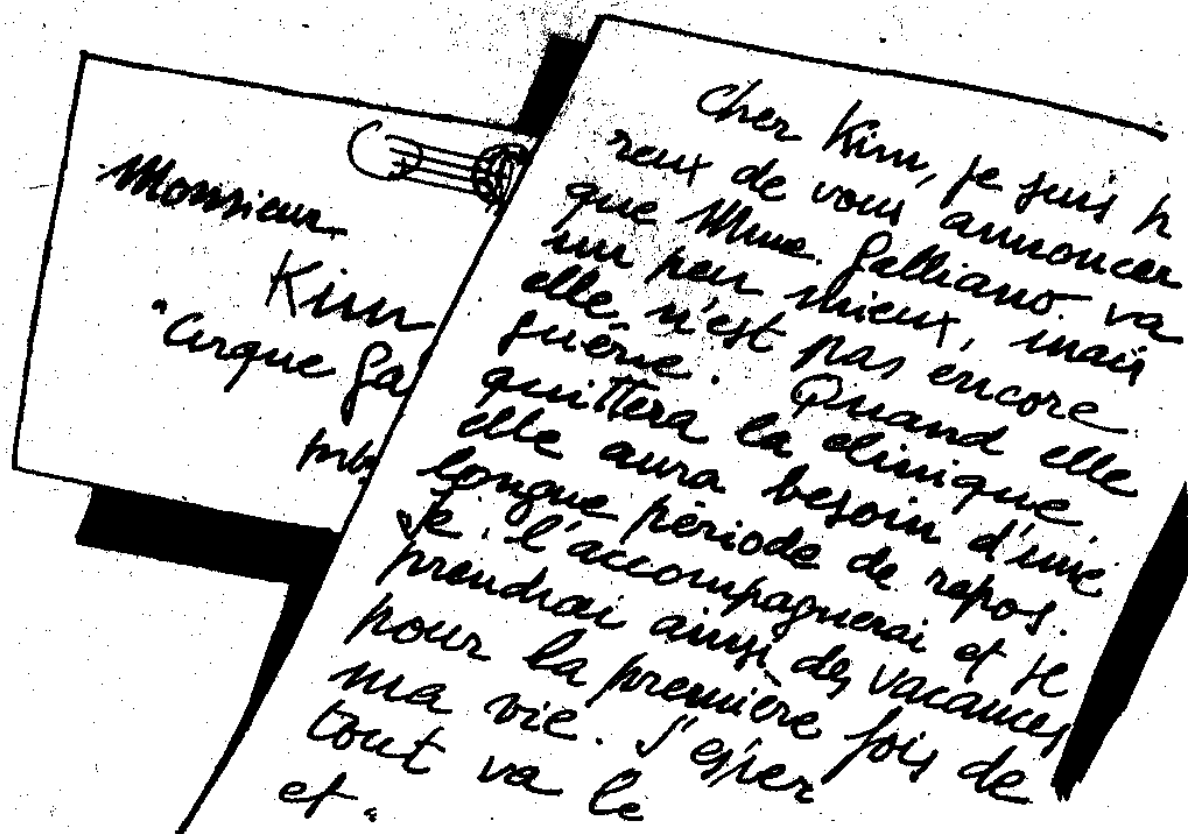 Monsieur
Kim
"Cirque Ga
Cher Kim, je suis h
reux de vous annoncer
que Mme. Galliano va
un peu mieux, mais
elle n'est pas encore
guérie. Quand elle
quittera la clinique,
elle aura besoin d'une
longue période de repos.
Je l'accompagnerai et je
prendrai ainsi des vacances
pour la première fois de
ma vie. J'espèr
tout va le
et